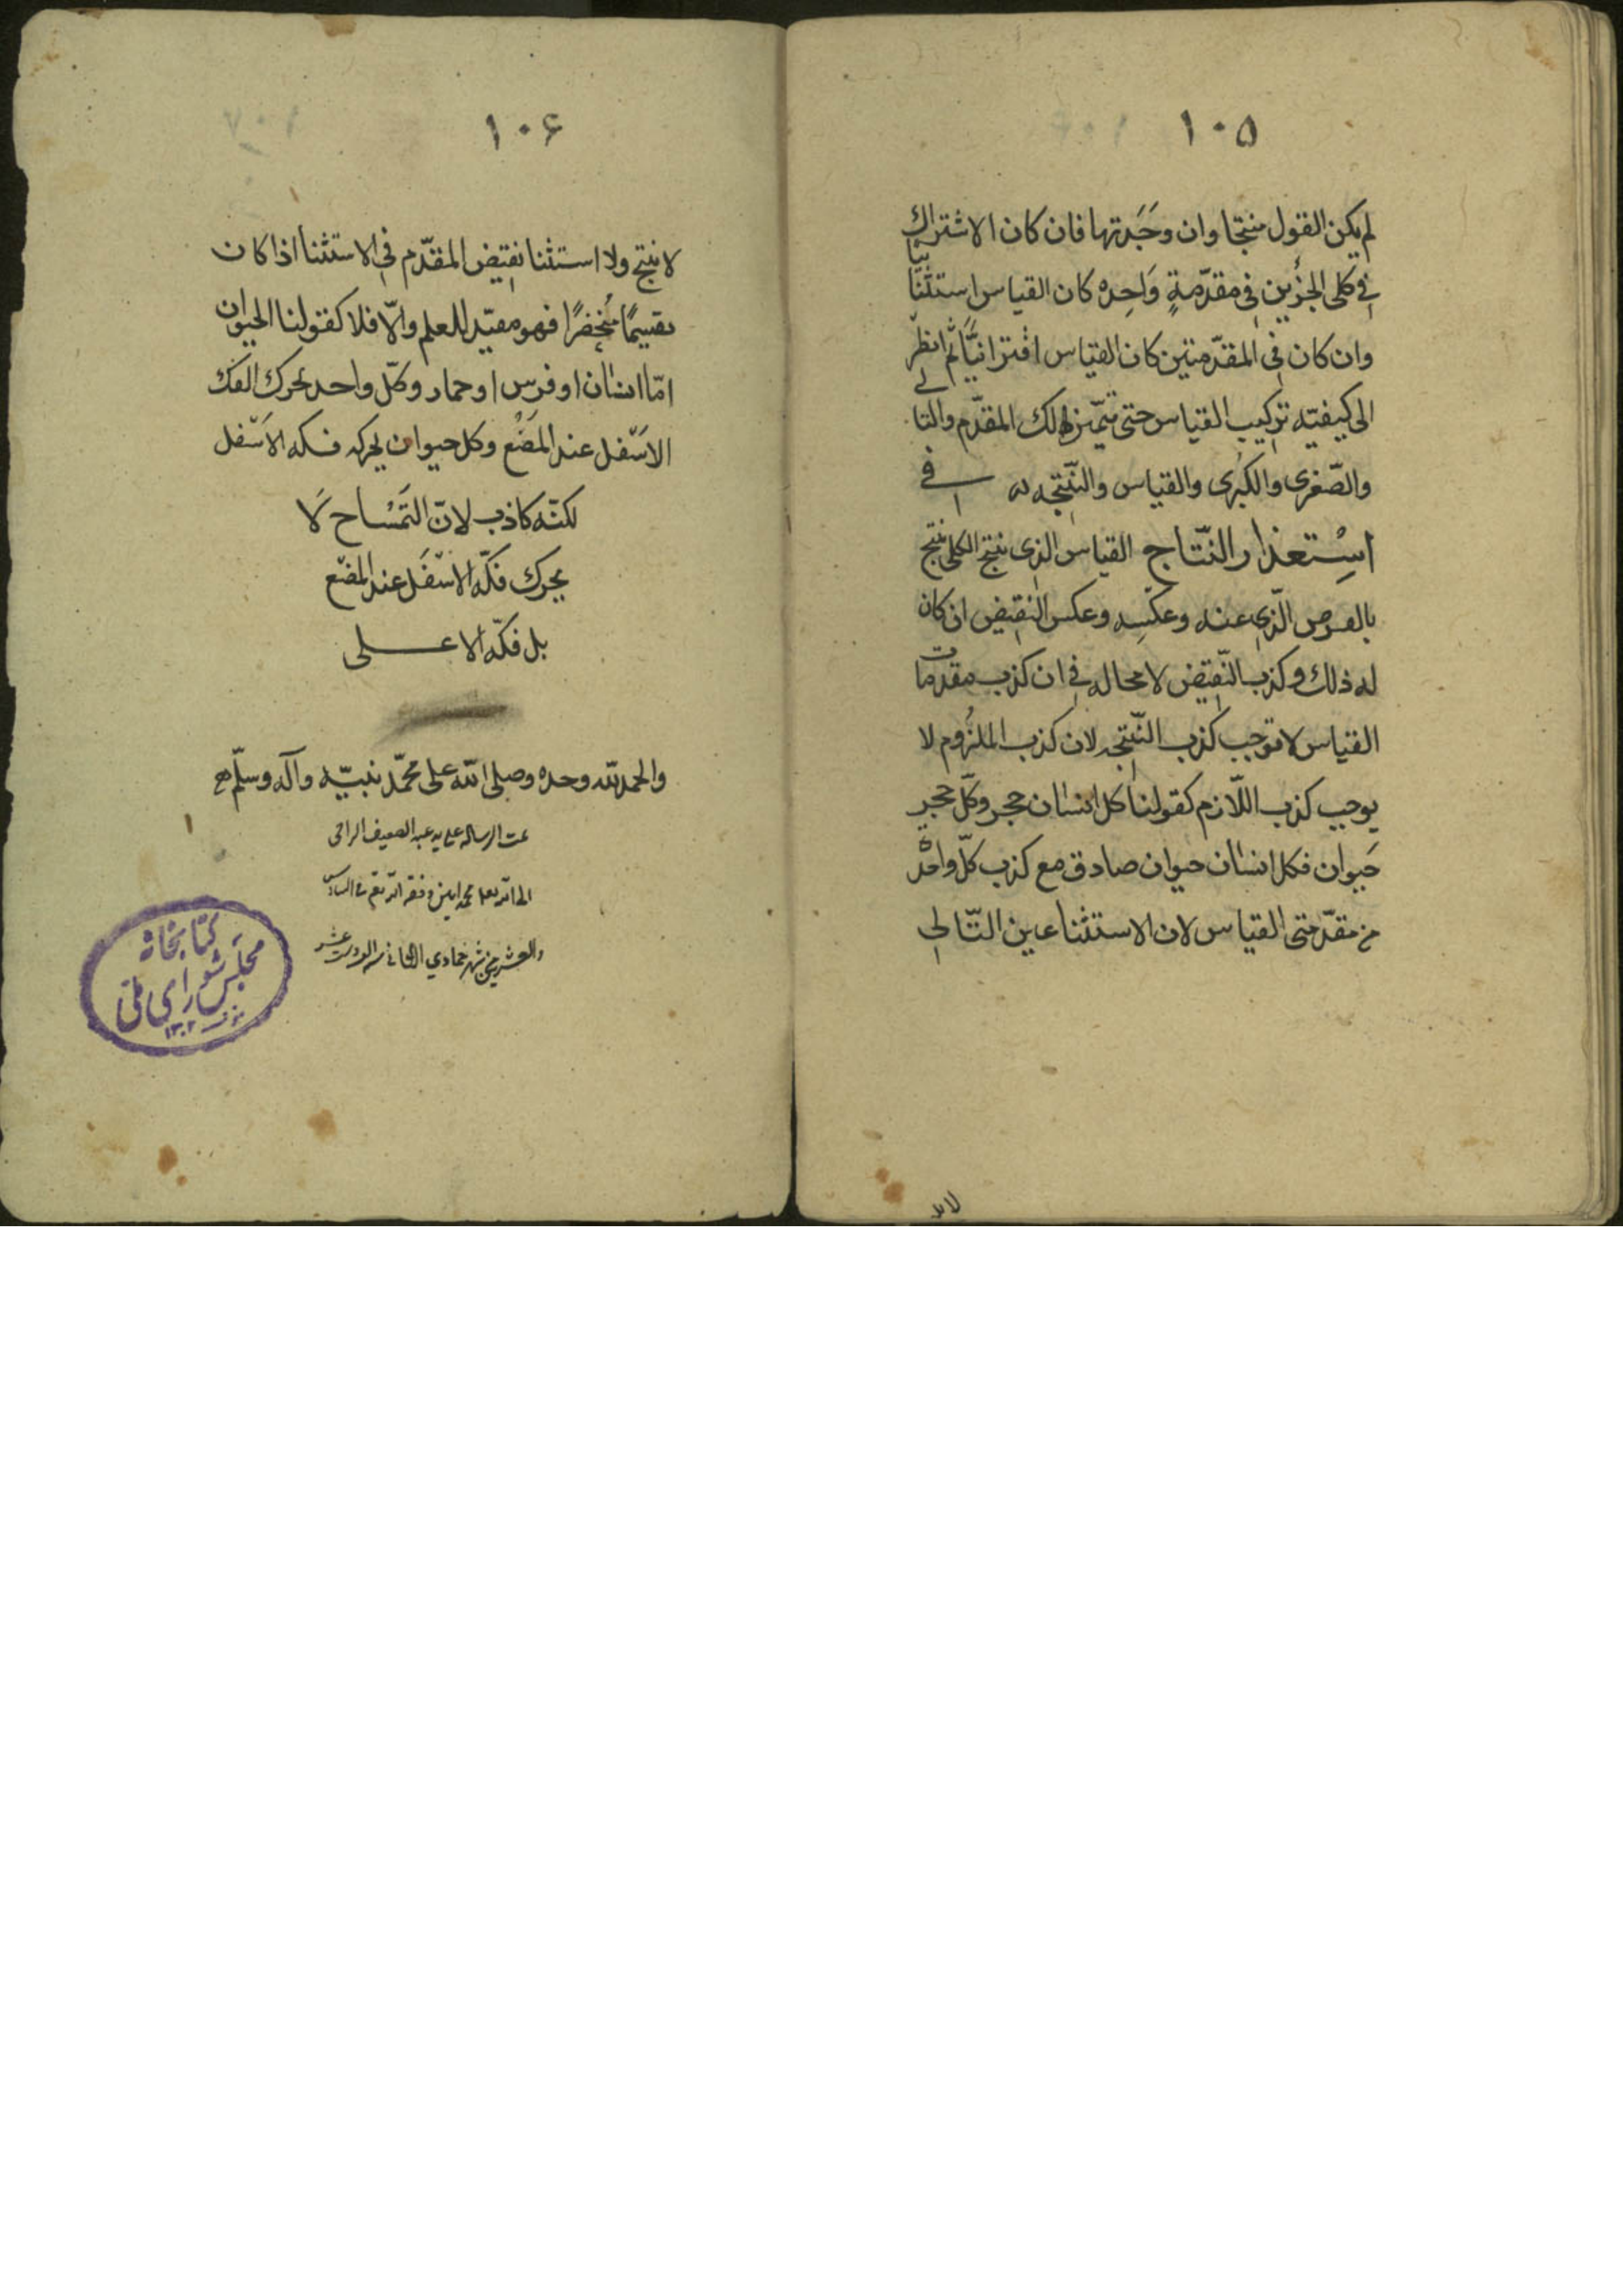 ١٠۵
لم يكن القول منتجا وان وَجَدتها فان كان الاشتراك
في كلى الجزئين في مقدّمةٍ وَاحِده كان القياس استثنائيّا
وان كان في المقدّمتين كان القياس اقترانيًّا ثم انظر
الى كيفيّته تركيب القياس حتى تتميّز لك المقدّم والتالي
والصّغرى والكبرى والقياس والنّتيجه في
اسْتعذار النّتاج القياس الذى ينتج الكلى ينتج
الّذي عنه وعكسِه وعكس النقيض ان كان
له ذلك وكذب النّقيض لا محاله في ان كذب مقدمات
القياس لا توجب كذب النّتيجه لان كذب الملزُوم لا
يوجب كذب اللّازم كقولنا كل انسان حجر وكلّ حجرٍ
حَيوان فكل انسان حيوان صادق مع كذب كلّ واحدة
من مقدّمتى القياس لان الاستثنا عين التّالي
لا ينتج
١٠۶
لا ينتج ولا استثنا نقيض المقدّم في الاستثنا اذا كان
تقسيمًا مُنحصرًا فهو مفيد للعلم والّا فلا كقولنا الحيوان
امّا انسان او فرس او حمار وكلّ واحد يحرك الفك
الاسْفل عند المضْغ وكل حيوان يحرك فكه الاَسْفل
لكنّه كاذب لانّ التَمْساح لَا
يحرك فكّه الاسْفَل عند المضْغ
بل فكّه الاعلى
والحمد لله وحده وصلى الله على محمّد نبيّه وآله وسلّم
تمت الرساله على يد عبد الضعيف الراجى
الى الله محمد امين وفقه الله في السادس
والعشرين من شهر جمادي الثاني
كتابخانه
مجلس شوراى ملى
١٣٠٢